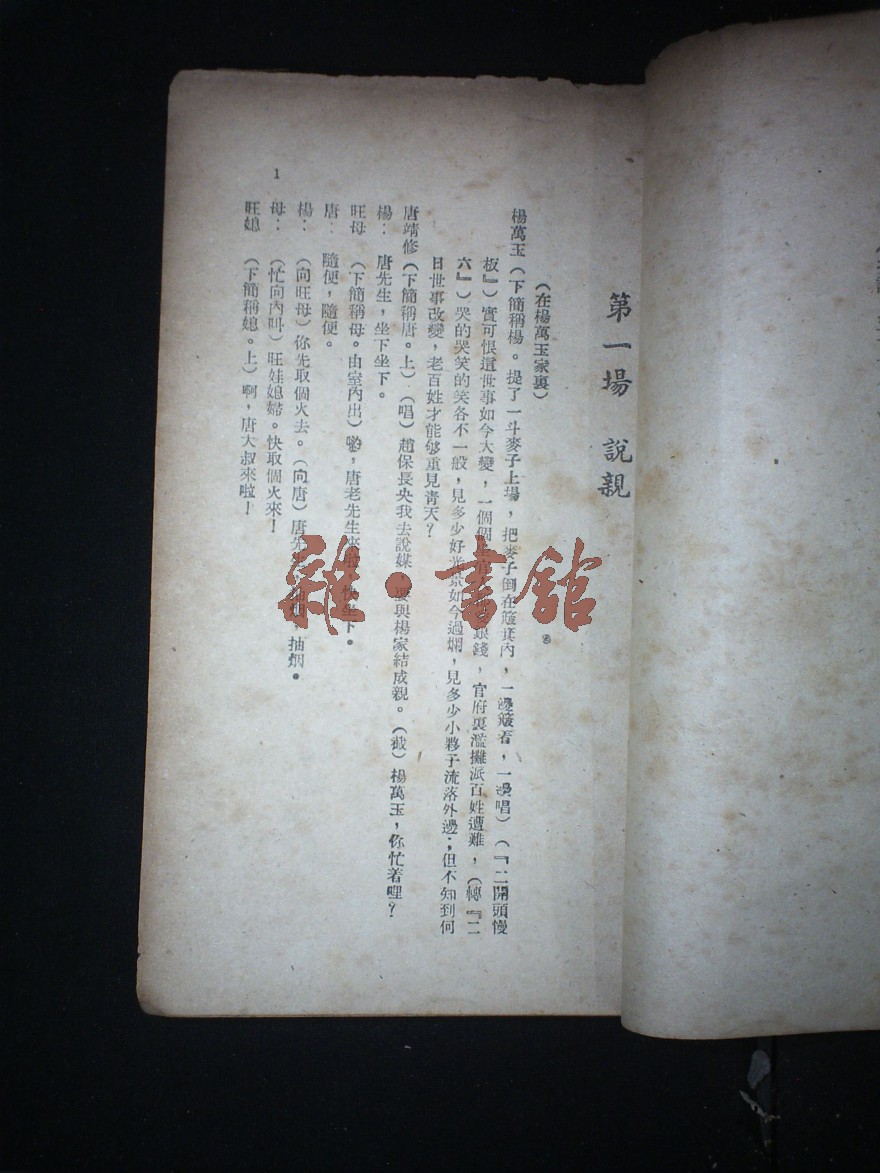 第一場 說親
(在楊萬玉家裏)
楊萬玉(下簡稱楊。提了一斗麥子上場,把麥子倒在簸箕內,一邊簸着,一邊唱)(『二開頭慢
板』)實可恨這世事如今大變,一個個 銀錢,官府裏濫攤派百姓遭難,(轉『二
六』)哭的哭笑的笑各不一般,見多少好光景如今過爛,見多少小夥子流落外邊;但不知到何
日世事改變,老百姓才能够重見青天?
唐靖修(下簡稱唐。上)(唱)趙保長央我去說媒,要與楊家結成親。(截)楊萬玉,你忙着哩?
楊: 唐先生,坐下坐下。
旺母 (下簡稱母。由室內出)喲,唐老先生來 快坐下。
唐: 隨便,隨便。
楊: (向旺母)你先取個火去。(向唐)唐先生,抽烟,抽烟。
母: (忙向內叫)旺娃媳婦。快取個火來!
旺媳 (下簡稱媳。上)啊,唐大叔來啦!
1
雜·書館